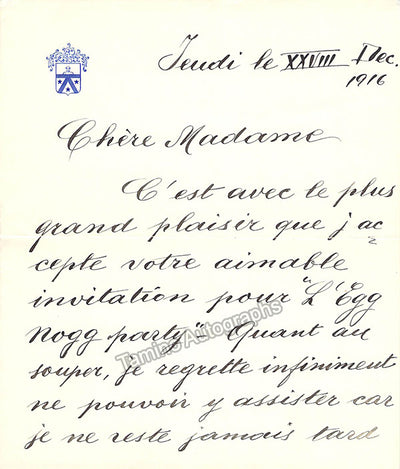 Jeudi le XXVIII Dec.
1916
Chère Madame
C'est avec le plus
grand plaisir que j'ac
cepte votre aimable
invitation pour "L'Egg
Nogg party". Quant au
souper, je regrette infiniment
ne pouvoir y assister car
je ne reste jamais tard
Tamino Autographs